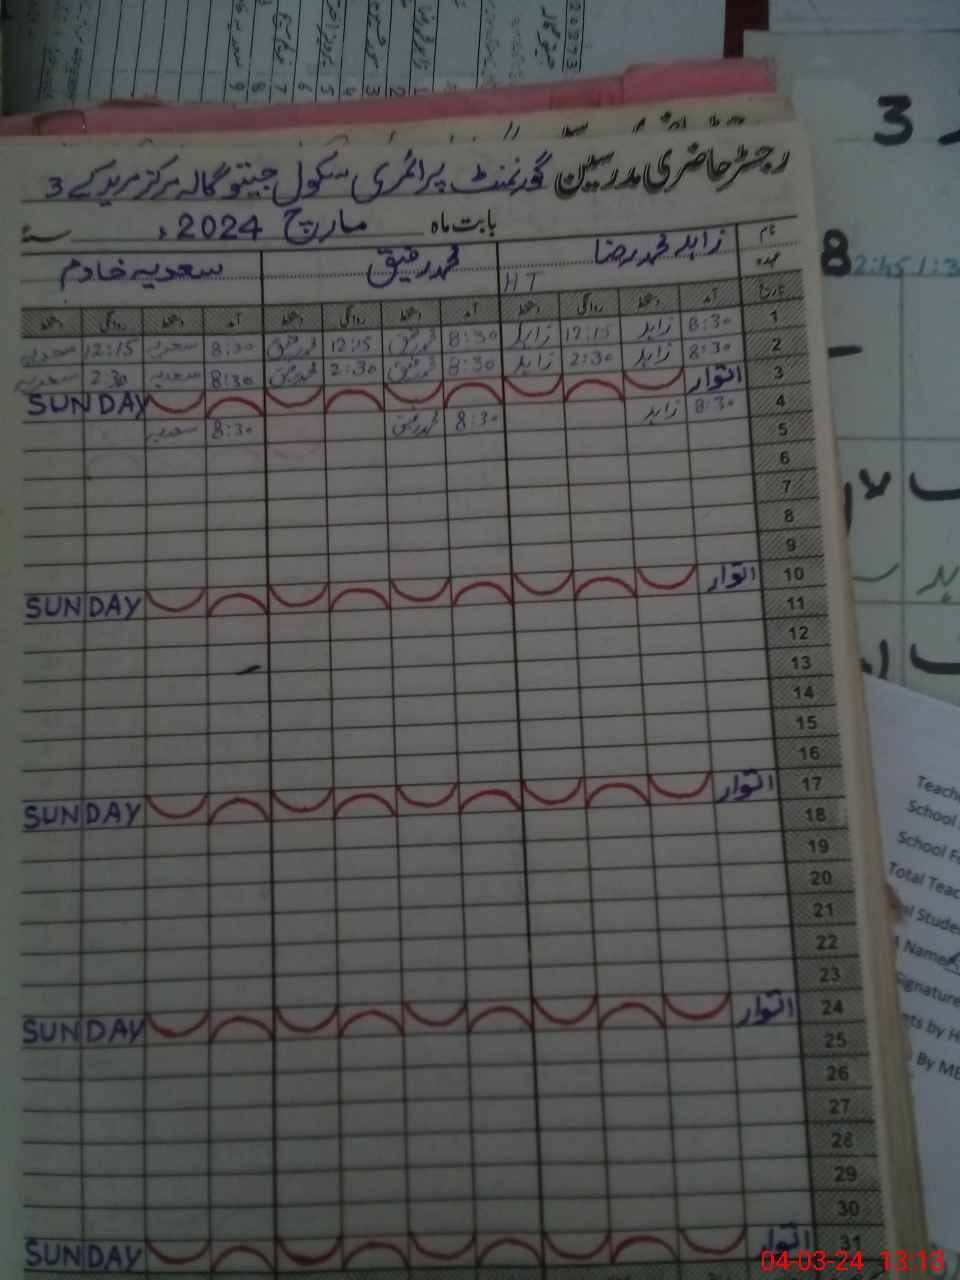 رجسٹر حاضری مدرسین گورنمنٹ پرائمری سکول جیتو گالہ مرکز مریدکے 3
بابت ماہ مارچ 2024ء سنہ
نام زاہد محمد رضا محمد رفیق سعدیہ خادم
عہدہ HT
تاریخ آمد دستخط روانگی دستخط آمد دستخط روانگی دستخط آمد دستخط روانگی دستخط
1 8:30 زاہد 12:15 زاہد 8:30 محمد رفیق 12:15 محمد رفیق 8:30 سعدیہ 12:15 سعدیہ
2 8:30 زاہد 2:30 زاہد 8:30 محمد رفیق 2:30 محمد رفیق 8:30 سعدیہ 2:30 سعدیہ
3 اتوار SUNDAY
4 8:30 زاہد 8:30 محمد رفیق 8:30 سعدیہ
5
6
7
8
9
10 اتوار SUNDAY
11
12
13
14
15
16
17 اتوار SUNDAY
18
19
20
21
22
23
24 اتوار SUNDAY
25
26
27
28
29
30
31 اتوار SUNDAY
3
8
2:45
Teache
School
School F
Total Teac
Studen
Name
Signature
nts by H
By ME
04-03-24 13:13